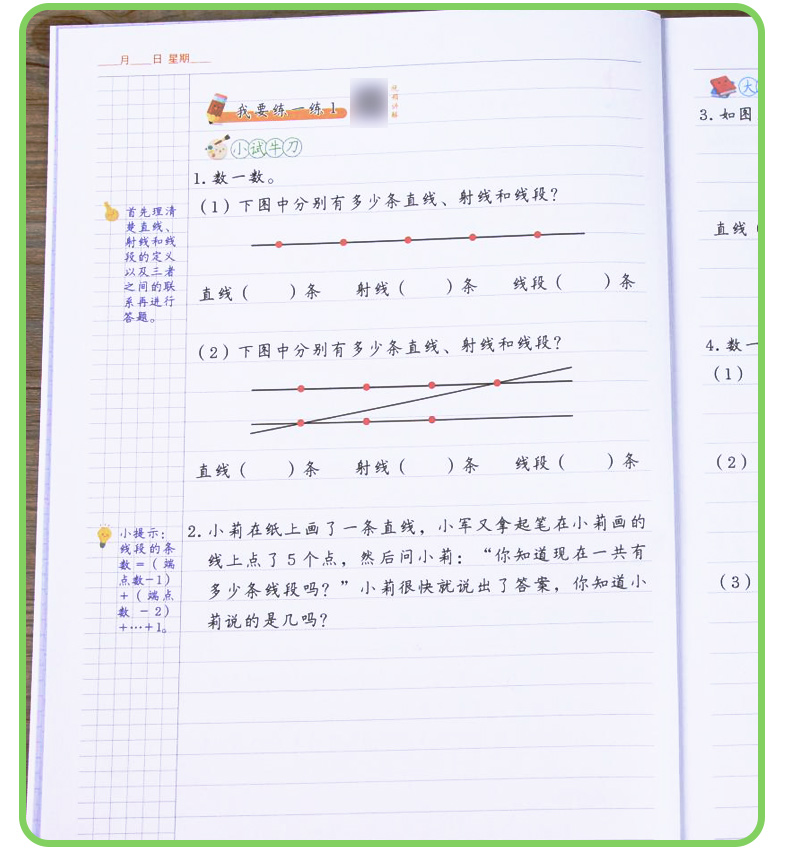 ____月____日 星期____
我要练一练1
视频讲解
小试牛刀
1.数一数。
(1)下图中分别有多少条直线、射线和线段?
直线(      )条    射线(      )条    线段(      )条
(2)下图中分别有多少条直线、射线和线段?
直线(      )条    射线(      )条    线段(      )条
2.小莉在纸上画了一条直线，小军又拿起笔在小莉画的
线上点了5个点，然后问小莉：“你知道现在一共有
多少条线段吗？”小莉很快就说出了答案，你知道小
莉说的是几吗?
首先理清
楚直线、
射线和线
段的定义
以及三者
之间的联
系再进行
答题。
小提示：
线段的条
数=(端
点数-1)
+(端点
数-2)
+…+1。
大
3.如图
直线(
4.数一
(1)
(2)
(3)